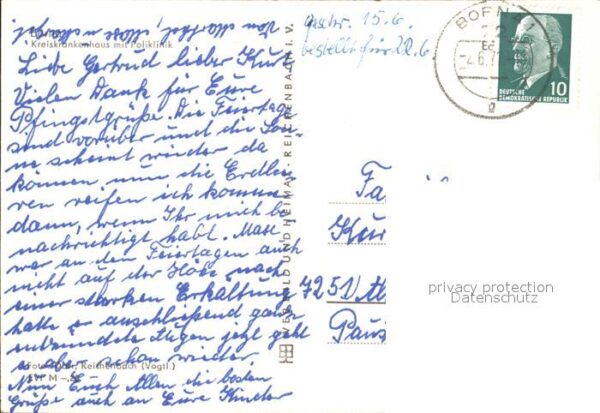 Kreiskrankenhaus mit Poliklinik
Liebe Gertrud lieber Kurt
Vielen Dank für Eure
Pfingstgrüße. Die Feiertage
sind vorüber und die Son-
ne scheint wieder da
können nun die Erdbee-
ren reifen ich komme
dann, wenn Ihr mich be
nachrichtigt habt. Max
war an den Feiertagen auch
nicht auf der Höhe nach
einer starken Erkältung
hatte er anschließend ganz
entzündete Augen jetzt geht
es aber schon wieder.
Nun Euch Allen die besten
Grüße auch an Eure Kinder
Foto Reichenbach (Vogtl.)
VERLAG BILD UND HEIMAT · REICHENBACH I. V.
geschr. 15.6.
bestellt für 22.6.
BORNA
10
DEUTSCHE
DEMOKRATISCHE REPUBLIK
Fa
Kur
7251
Paus
privacy protection
Datenschutz